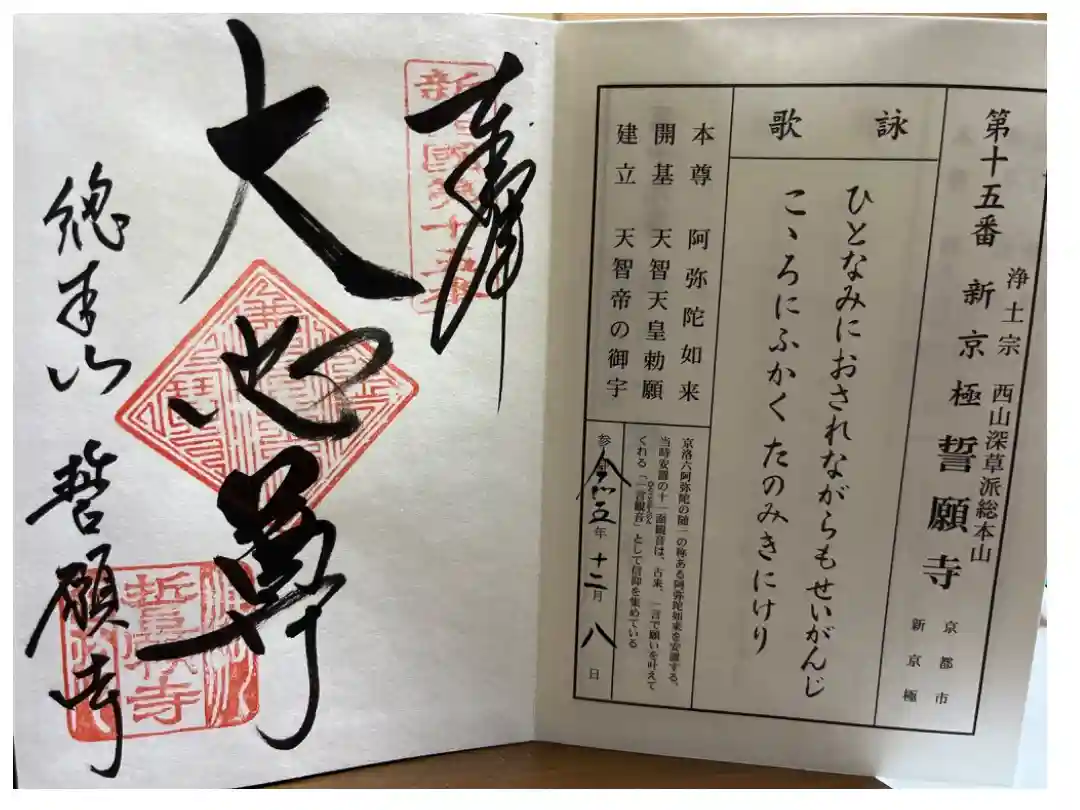 第十五番 新京極 誓願寺
浄土宗 西山深草派総本山
京都市
新京極
詠歌
ひとなみにおされながらもせいがんじ
こゝろにふかくたのみきにけり
本尊 阿弥陀如来
開基 天智天皇勅願
建立 天智帝の御宇
京洛六阿弥陀の随一の称ある阿弥陀如来を安置する。
当時安置の十一面観音は、古来、一言で願いを叶えて
くれる「一言観音」として信仰を集めている
令和五年 十二月 八日
奉拝
新西国第十五番
大悲尊
總本山 誓願寺
誓願寺